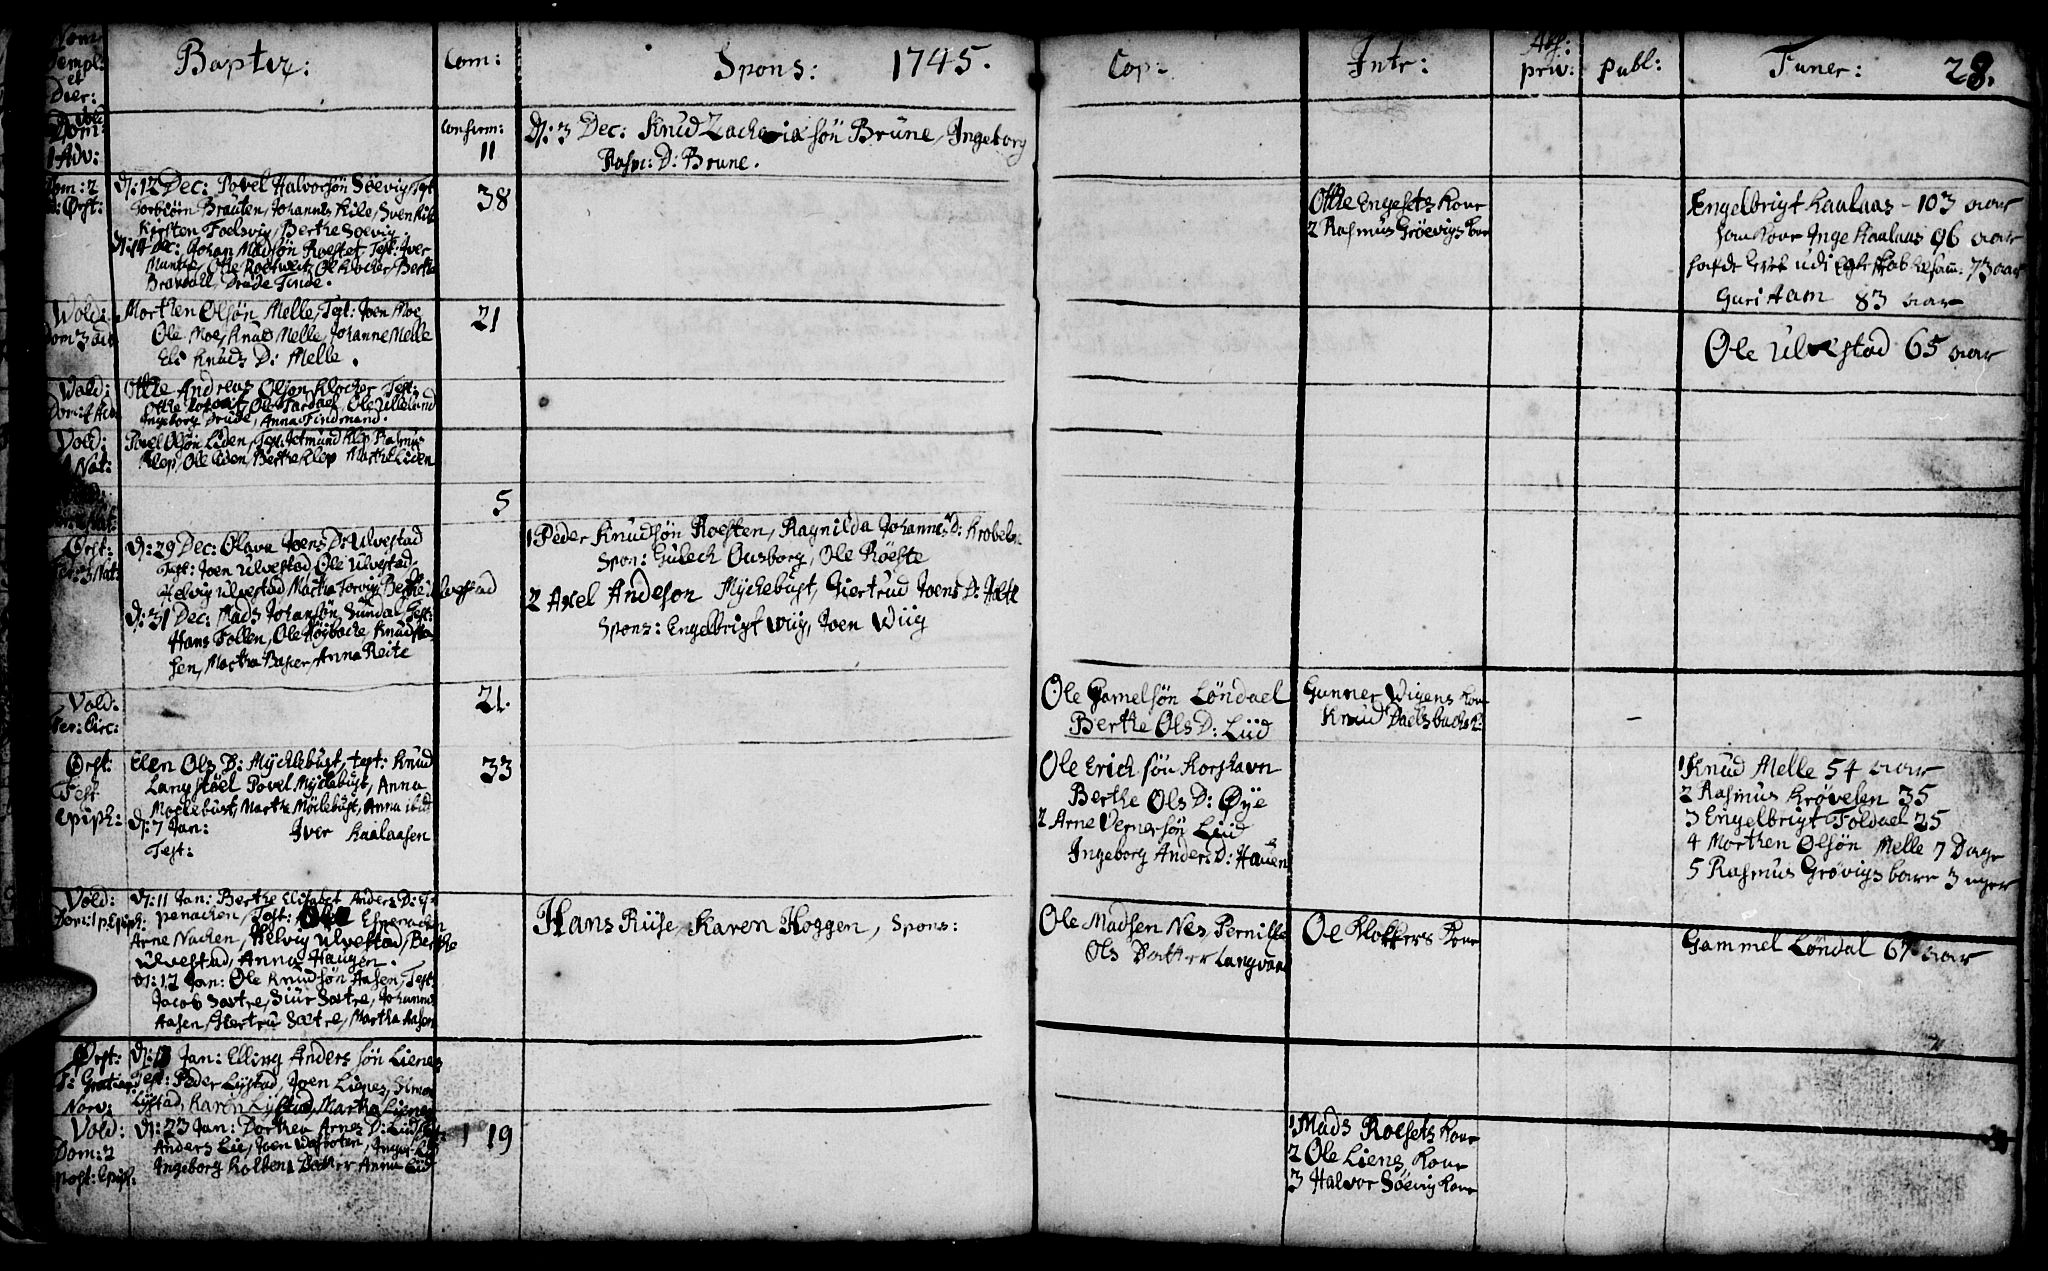 Nom:
Templ:
et
Dier:
Baptiz:
Com:
Spons:
1745.
Cop:
Intr:
Abs:
priv:
publ:
Funer:
28.
Vold
Dom:
1 Adv:
Confirm:
11
D: 3 Dec: Knud Zachariæ søn Brune, Ingeborg
Rasm: D: Brune.
Dom: 2
Ørst:
D: 12 Dec: Povel Halvorsøn Søevig Test
Torbiørn Brauten, Johannes Kile, Sven Kile
Karsten Foelsvig, Berthe Søevig.
D: 14 Dec: Johan Madsøn Roeset Test: Iver
Munthe, Otte Roetweit, Ole Klocker, Berthe
Bravoll, Drude Finde.
38
Otte Engesets Kone
2 Rasmus Grøevigs Kone
Engelbrigt Kaalaas - 103 aar
hans Kone Inge Kaalaas 96 aar
hafde levet udi Egteskab tilsam: 73 aar
Guri Aam 83 aar
Vold:
Dom 3 adv
Morthen Olsøn Melle, Test: Joen Moe
Ole Moe, Knud Melle, Johanne Melle
Eli Knuds D: Melle.
21
Ole Ulvestad 65 aar
Vold:
Dom: 4 Adv
Otte Andreas Olsøn Klocker Test:
Otte Ole Aardael, Ole Ulleland
Ingeborg Drude, Anna Findmand.
Vold:
Nat:
Povel Olsøn Liden, Test: Jetmund Klep Rasmus
Klep, Ole Liden, Berthe Klep Marthe Liden
5
Ørst:
Fer: 3 Nat:
D: 29 Dec: Olava Joens D: Ulvestad
Test: Joen Ulvestad, Ole Ulvestad
Helvig Ulvestad, Martha Torvig Berthe Ulvestad
D: 31 Dec: Mads Johansøn Sundal Test:
Hans Follen, Ole Høgbacke, Knud
sen, Martha Baser, Anna Reite
1 Peder Knudsøn Roesten, Ragnilda Johannes D: Krobelse
Spon: Gulech Ousborg, Ole Røeste
2 Axel Andeson Myckebust, Giertrud Joens D: Holte
Spons: Engelbrigt Wiig, Joen Wiig
Vold:
Fer: Circ:
21.
Ole Gamelsøn Løndael
Berthe Ols D: Liid
Gunner Wigens Kone
Knud Daelsbackes K:
Ørst:
Fest
Epiph:
Elen Ols D: Mycklebust, test: Knud
Langstøel Povel Myclebust, Anna
Moclebust, Marthe Møclebust, Anna ibid
D: 7 Jan: Iver Kaalaasen
Test:
33
Ole Erich søn Korshavn
Berthe Ols D: Øye
2 Arne Vernersøn Liid
Ingeborg Anders D: Hauen
1 Knud Melle 54 aar
2 Rasmus Krøvelsen 35
3 Engelbrigt Foldael 25
4 Morthen Olsøn Melle 7 Dage
5 Rasmus Grøvigs barn 3 uger
Vold:
Dom: 1 p. Epiph:
D: 11 Jan: Berthe Elisabet Anders D: Es
penachen, Test: Ole Espenachen
Arne Nachen, Helvig Ulvestad, Berthe
Ulvestad, Anna Haugen.
D: 12 Jan: Ole Knudsøn Aasen, Test:
Jacob Sætre, Siur Sætre, Johanna
Aasen, Giertru Sætre, Martha Aasen
Hans Riise, Karen Hoggen, Spons:
Ole Madsen Nes, Pernille
Ols Datter Langvaa
Ole Klokkers Kone
Gammel Løndal 67 aar
Ørst:
Grat: act
Norv:
Jan: Elling Anders søn Lienes
Test: Peder Lystad, Joen Lienes, Simon
Lystad, Karen Lystad, Martha Lienes
Vold:
Dom: 2
post: Epiph:
D: 23 Jan: Dorthea Arnes D: Liid
Anders Lie, Joen
Ingeborg Kolbens Datter Anna Liid
1 19
1 Mads Roesets Kone
2 Ole Lienes Kone
3 Halvor Søevig Kone